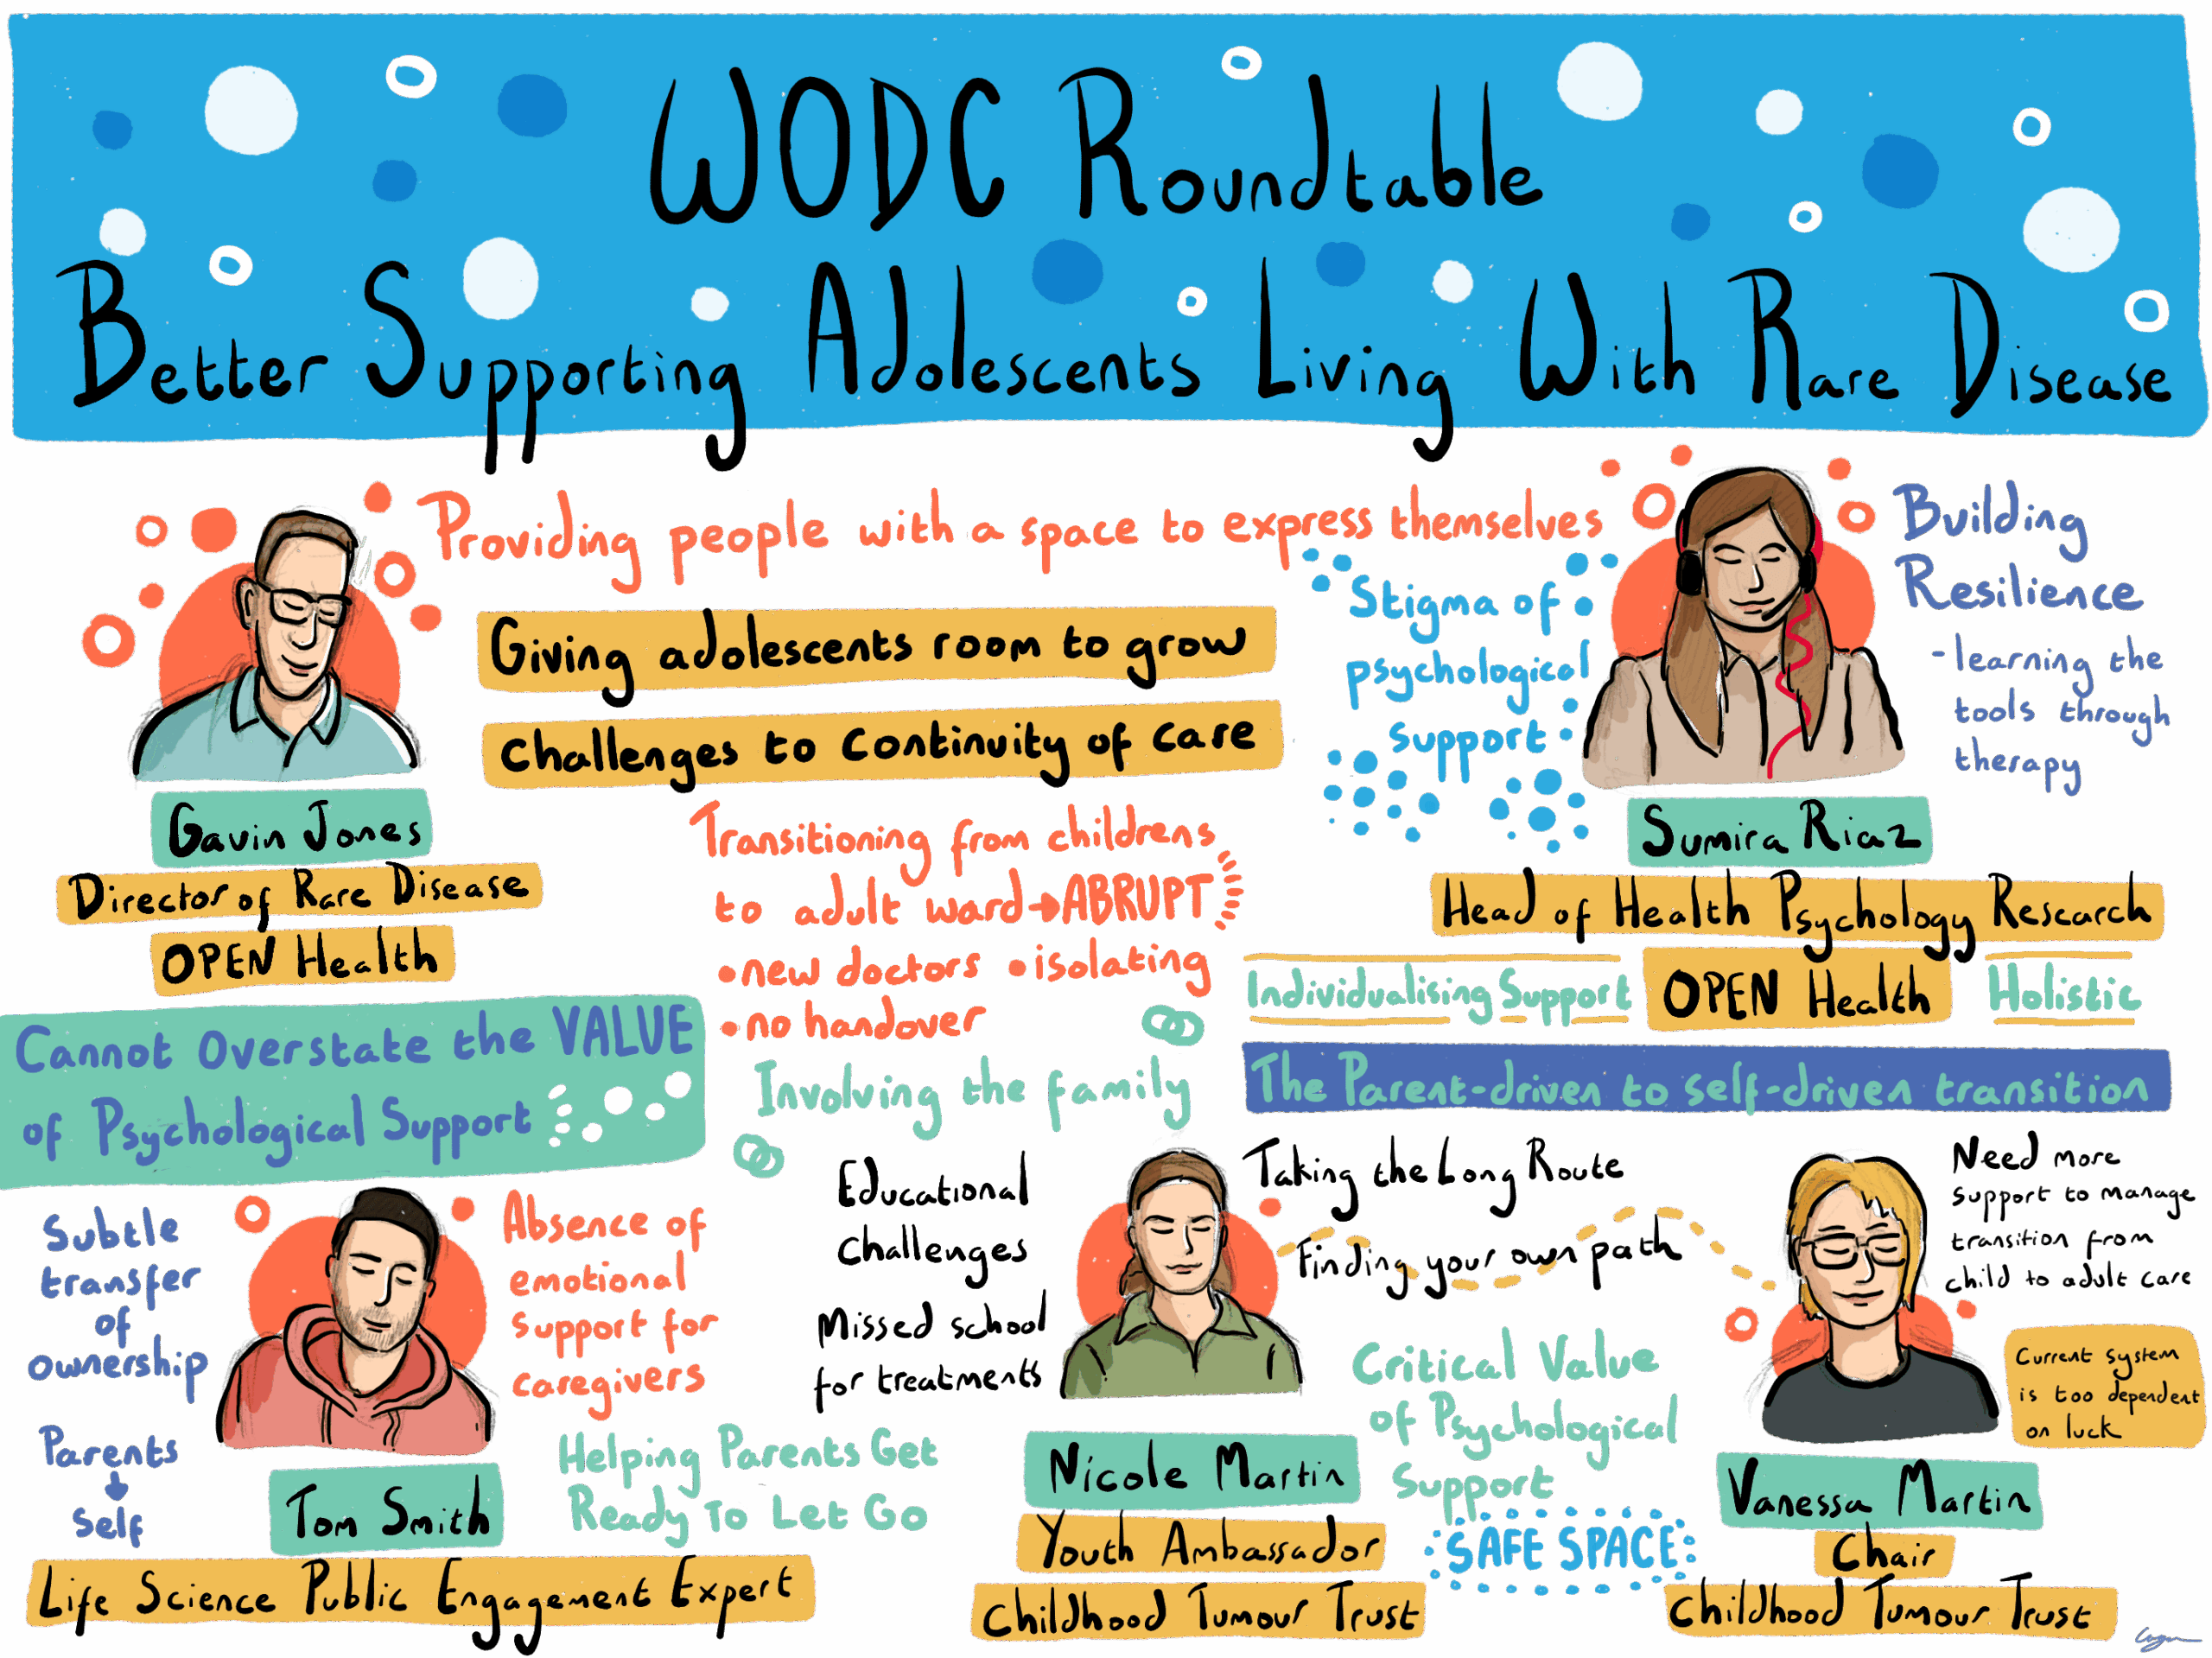 WODC Roundtable
Better Supporting Adolescents Living With Rare Disease
Providing people with a space to express themselves
Giving adolescents room to grow
Challenges to Continuity of care
Gavin Jones
Director of Rare Disease
OPEN Health
Transitioning from childrens
to adult ward→ABRUPT
•new doctors •isolating
•no handover
Stigma of
psychological
support
Building
Resilience
-learning the
tools through
therapy
Sumira Riaz
Head of Health Psychology Research
OPEN Health
Individualising Support
Holistic
Cannot Overstate the VALUE
of Psychological Support
Involving the family
The Parent-driven to self-driven transition
Subtle
transfer
of
ownership
Parents
↓
Self
Absence of
emotional
support for
caregivers
Helping Parents Get
Ready To Let Go
Tom Smith
Life Science Public Engagement Expert
Educational
Challenges
Missed school
for treatments
Taking the Long Route
Finding your own path
Nicole Martin
Youth Ambassador
Childhood Tumour Trust
Critical Value
of Psychological
Support
SAFE SPACE
Need more
support to manage
transition from
child to adult care
Current system
is too dependent
on luck
Vanessa Martin
Chair
Childhood Tumour Trust